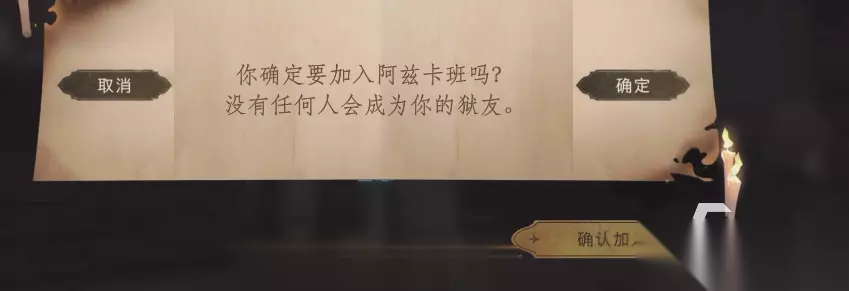 你确定要加入阿兹卡班吗?
没有任何人会成为你的狱友。
取消
确定
确认加